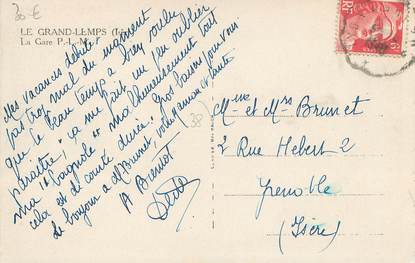 30 €
LE GRAND-LEMPS (Isère)
La Gare P.-L.-M.
Mes vacances débutent
pas trop mal du moment
que le beau temps a bien voulu
paraître, ça me fait un peu oublier
ma "bagnole" malheureusement tout
cela est de courte durée. Gros baisers pour vous
de bonjour à Mr Brunet
A Bientôt
38
Mme et Mrs Brunet
2 Rue Hébert 2
Grenoble
(Isère)
RF